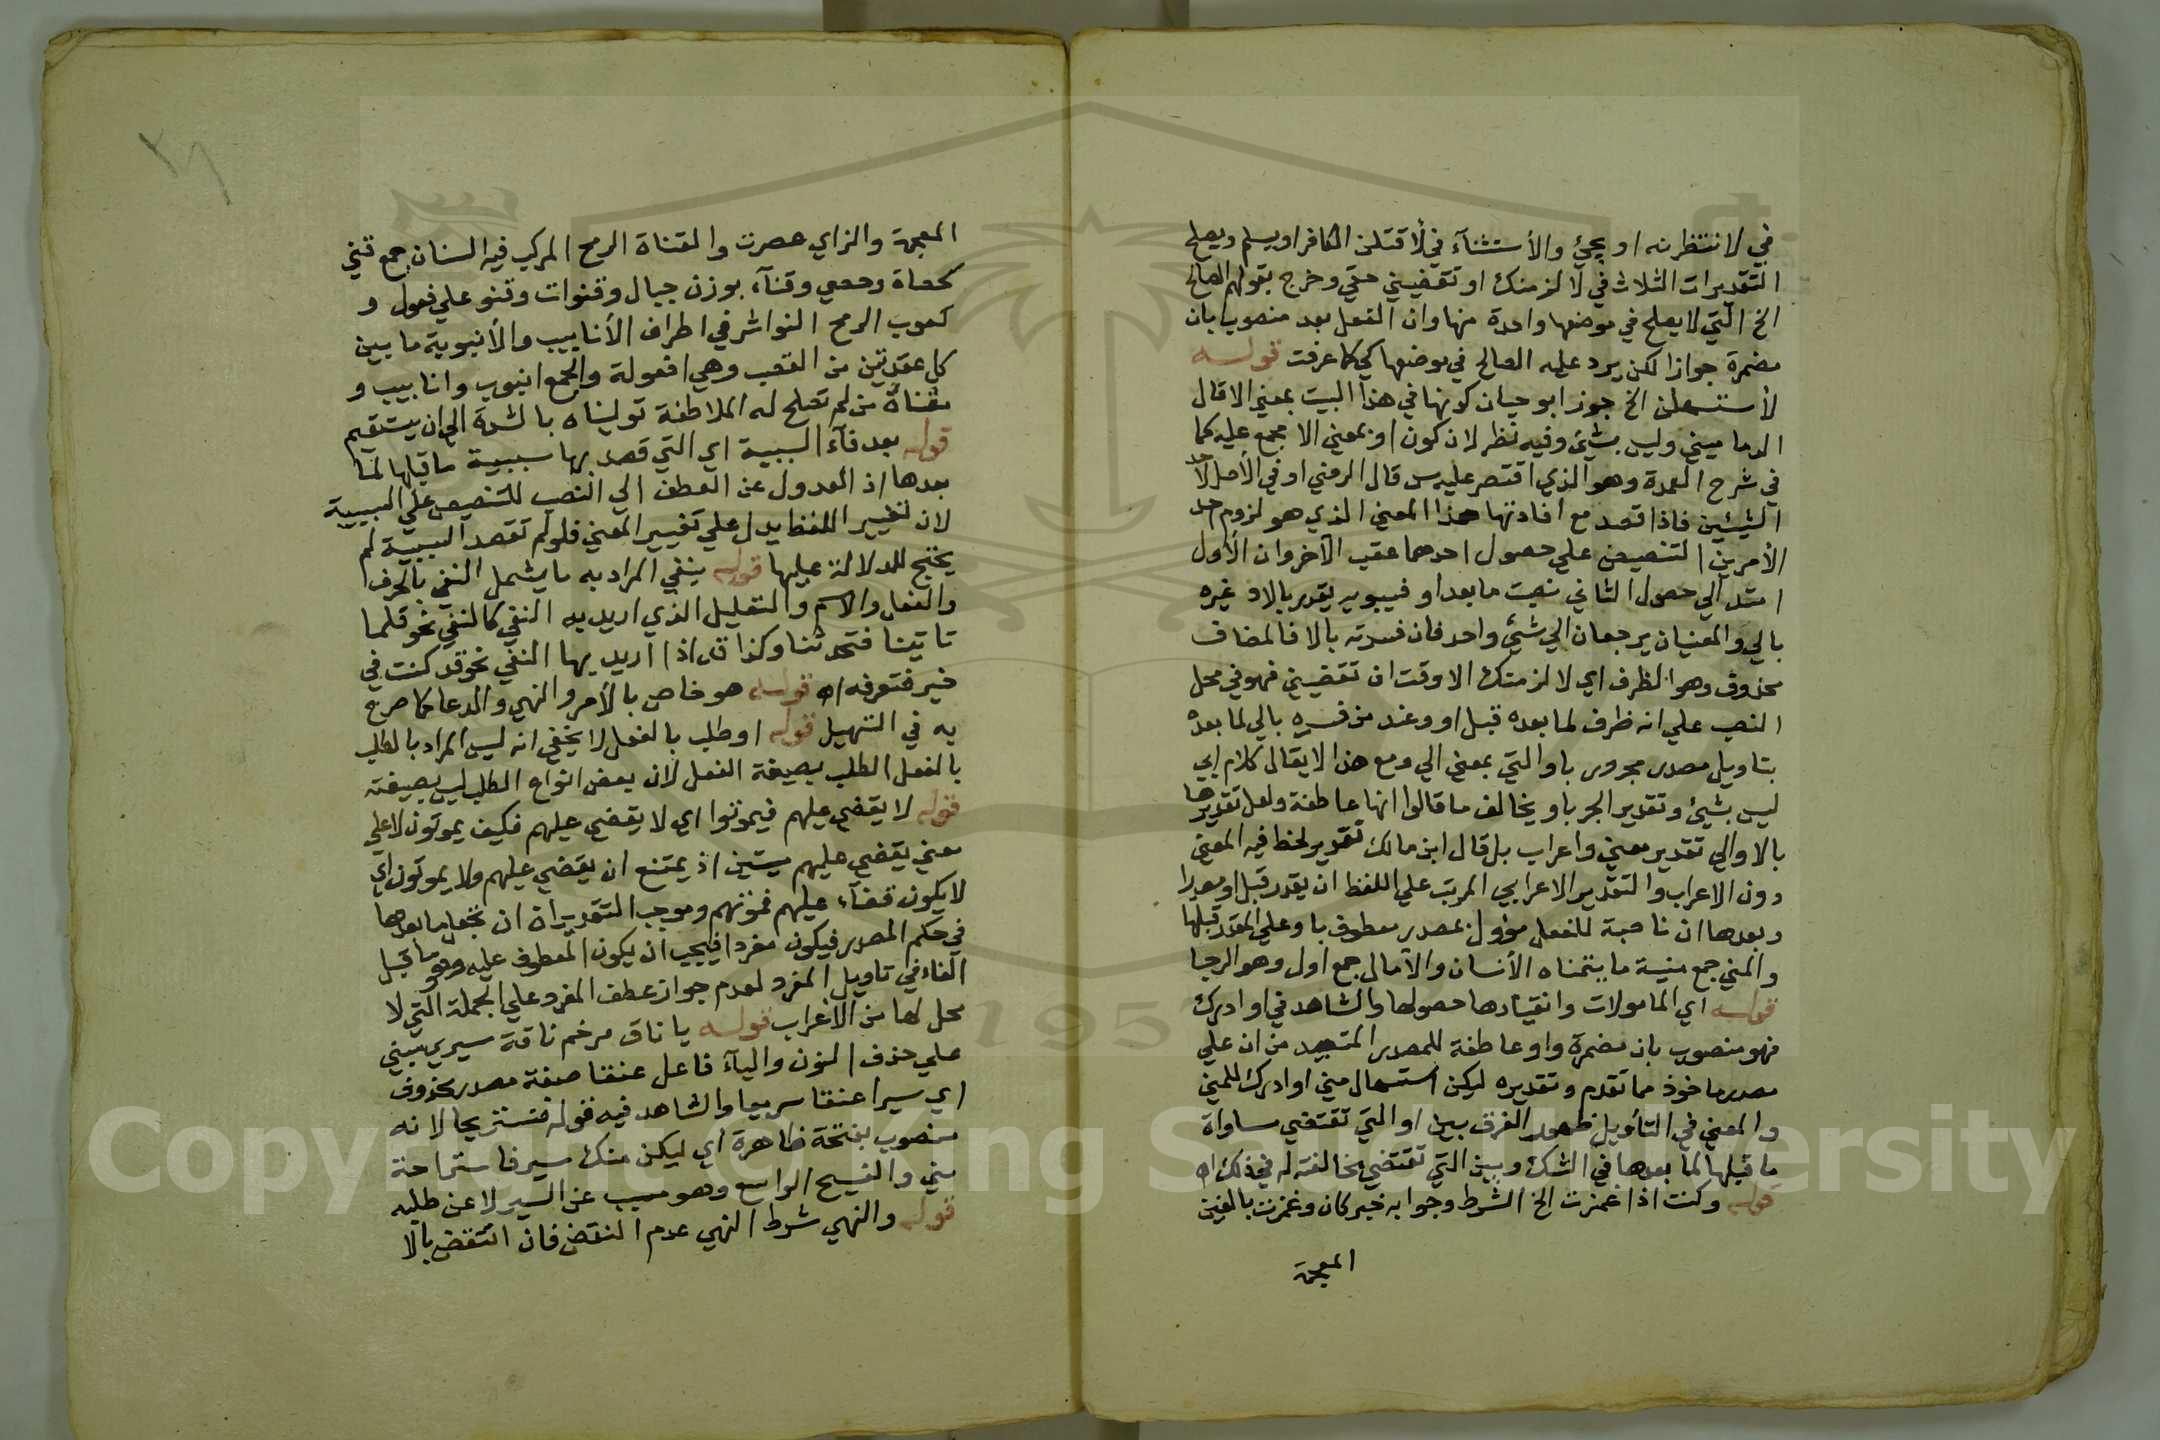 في لانتظرنه او يجيء والأستثناء في لأقتلن الكافر او يسلم ويصلح
التقديرات الثلاث في لألزمنك او تقضيني حقي وخرج بقولهم الصالح
الخ التي لا يصلح في موضعها واحدة منها وان الفعل بعد منصوب بان
مضمرة جوازا لكن يرد عليه الصالح في موضعها كي كما عرفت قوله
لأستسهلن الخ جوز ابو حيان كونها في هذا البيت بمعنى الا قال
الدماميني وليس بشئ وفيه نظر لان كون او بمعنى الا مجمع عليه كما
في شرح العمدة وهو الذي اقتصر عليه س قال الرضي او في الأصل لأحد
الشيئين فاذا قصد مع افادتها هذا المعنى الذي هو لزوم احد
الأمرين التنصيص علي حصول احدهما عقب الآخر وان الأول
امتد الي حصول الثاني نصبت ما بعد او فسيبويه يقدر بالا وغيره
بالي والمعنيان يرجعان الي شئ واحد فان فسرته بالا فالمضاف
محذوف وهو الظرف اي لالزمتك الا وقت ان تقضيني فهو في محل
النصب علي انه ظرف لما بعده قبل او وعند من فسره بالي لما بعده
بتاويل مصدر مجرور باو التي بمعنى الي ومع هذا لا يقال كلام
ليس بشئ وتقدير الجر باو يخالف ما قالوا انها عاطفة ولعل تقديرها
بالا والي تقدير معنى واعراب بل قال ابن مالك تقدير لحظ فيه المعنى
دون الاعراب والتقدير الاعرابي المرتب علي اللفظ ان يقدر قبل او مصدرا
وبعدها ان ناصبة للفعل مؤول بمصدر معطوف باو علي المقدر قبلها
والمني جمع منية ما يتمناه الأنسان والآمال جمع اول وهو الرجا
قوله اي المامولات وانقيادها حصولها والشاهد في او ادرك
فهو منصوب بان مضمرة واو عاطفة للمصدر المتصيد من ان علي
مصدر ماخوذ مما تقدم وتقديره ليكن استسهال مني او ادرك للمنى
والمعنى في التأويل ظهور الفرق بين او التي تقتضي مساواة
ما قبلها لما بعدها في الشك وبين التي تقتضي مخالفته له في ذلك اه
قوله وكنت اذا غمزت الخ الشرط وجوابه خبر كان وغمزت بالغين
المعجمة
المعجمة والزاي عصرت والقناة الرمح المركب فيه السنان جمع قني
كحصاة وحصي وقناء بوزن جبال وقنوات وقنو علي فعول و
كعوب الرمح النواشر في اطراف الأنابيب والأنبوبة ما بين
كل عقدتين من القصب وهي افعولة والجمع انبوب وانابيب و
مقناة من لم تصلح له الملاطفة توليناه بالشدة الي ان يستقيم
قوله بعد فاء السببية اي التي قصد بها سببية ما قبلها لما
بعدها اذ العدول عن العطف الي النصب للتنصيص علي السببية
لان تغيير اللفظ يدل علي تغيير المعنى فلو لم تقصد السببية لم
يحتج للدلالة عليها قوله بنفي المراد به ما يشمل النفي بالحرف
والفعل والاسم والتقليل الذي اريد به النفي كالنفي نحو قلما
تاتينا فتحدثنا وكذا قد اذا اريد بها النفي نحو قد كنت في
خير فتعرفه اه قوله هو خاص بالأمر والنهي والدعا كما صرح
به في التسهيل قوله او طلب بالفعل لا يخفي انه ليس المراد بالطلب
بالفعل الطلب بصيغة الفعل لأن بعض انواع الطلب ليس بصيغته
قوله لا يقضي عليهم فيموتوا اي لا يقضي عليهم فكيف يموتون لا علي
معنى يقضي عليهم ميتين اذ يمتنع ان يقضي عليهم ولا يموتون اي
لا يكون قضاء عليهم فموتهم وموجب التقدير ان ان تجعل ما بعدها
في حكم المصدر فيكون مفردا فيجب ان يكون المعطوف عليه وهو ما قبل
الفاء في تاويل المفرد لعدم جواز عطف المفرد علي الجملة التي لا
محل لها من الأعراب قوله يا ناق مرخم ناقة سيري مبني
علي حذف النون والياء فاعل عنقا صفة مصدر محذوف
اي سيرا عنقا سريعا والشاهد فيه قوله فنستريحا لانه
منصوب بفتحة ظاهرة اي ليكن منك سير فاستراحة
مني والفسيح الواسع وهو مسبب عن السير لا عن طلبه
قوله والنهي شرط النهي عدم النقض فان انتقض بالا